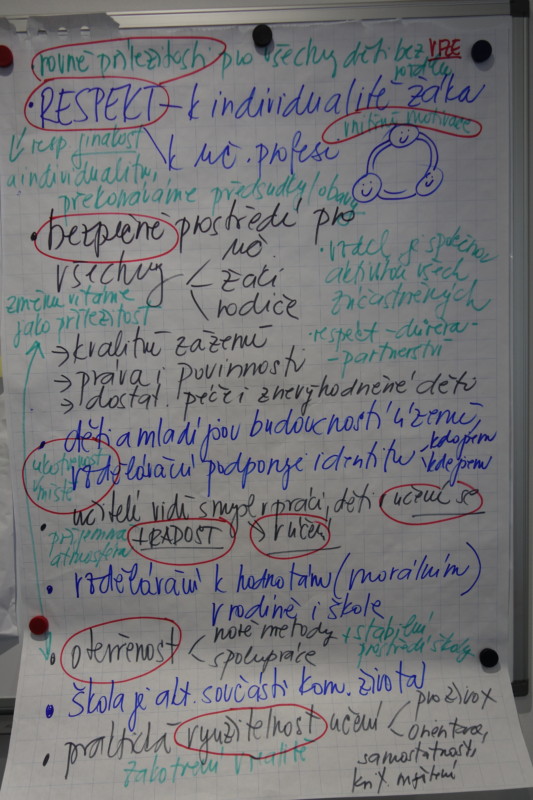 rovné příležitosti pro všechny děti bez
rozdílu
• RESPEKT – k individualitě žáka
vnitřní motivace
k uč. profesi
resp. jinakost
a individualitu,
překonáváme předsudky/obavy
• bezpečné prostředí pro
všechny
uč.
žáci
rodiče
• vzděl. je společnou
aktivitou všech
zúčastněných
změnu vítáme
jako příležitost
• respekt – důvěra –
– partnerství
→ kvalitní zázemí
→ práva i povinnosti
→ dostat. péče i znevýhodněné děti
• děti a mladí jsou budoucností území
ukotvenost
v místě
vzdělávání podporuje identitu
kdo jsem
kde jsem
• učitelé vidí smysl v práci, děti v učení se
příjemná
atmosféra
+ RADOST
z učení
• vzdělávání k hodnotám (morálním)
v rodině i škole
• otevřenost
nové metody
spolupráce
+ stabilní
prostředí školy
• škola je akt. součástí kom. života
• praktická využitelnost učení
pro život
orientace,
samostatnost,
krit. myšlení
zakotvení v realitě